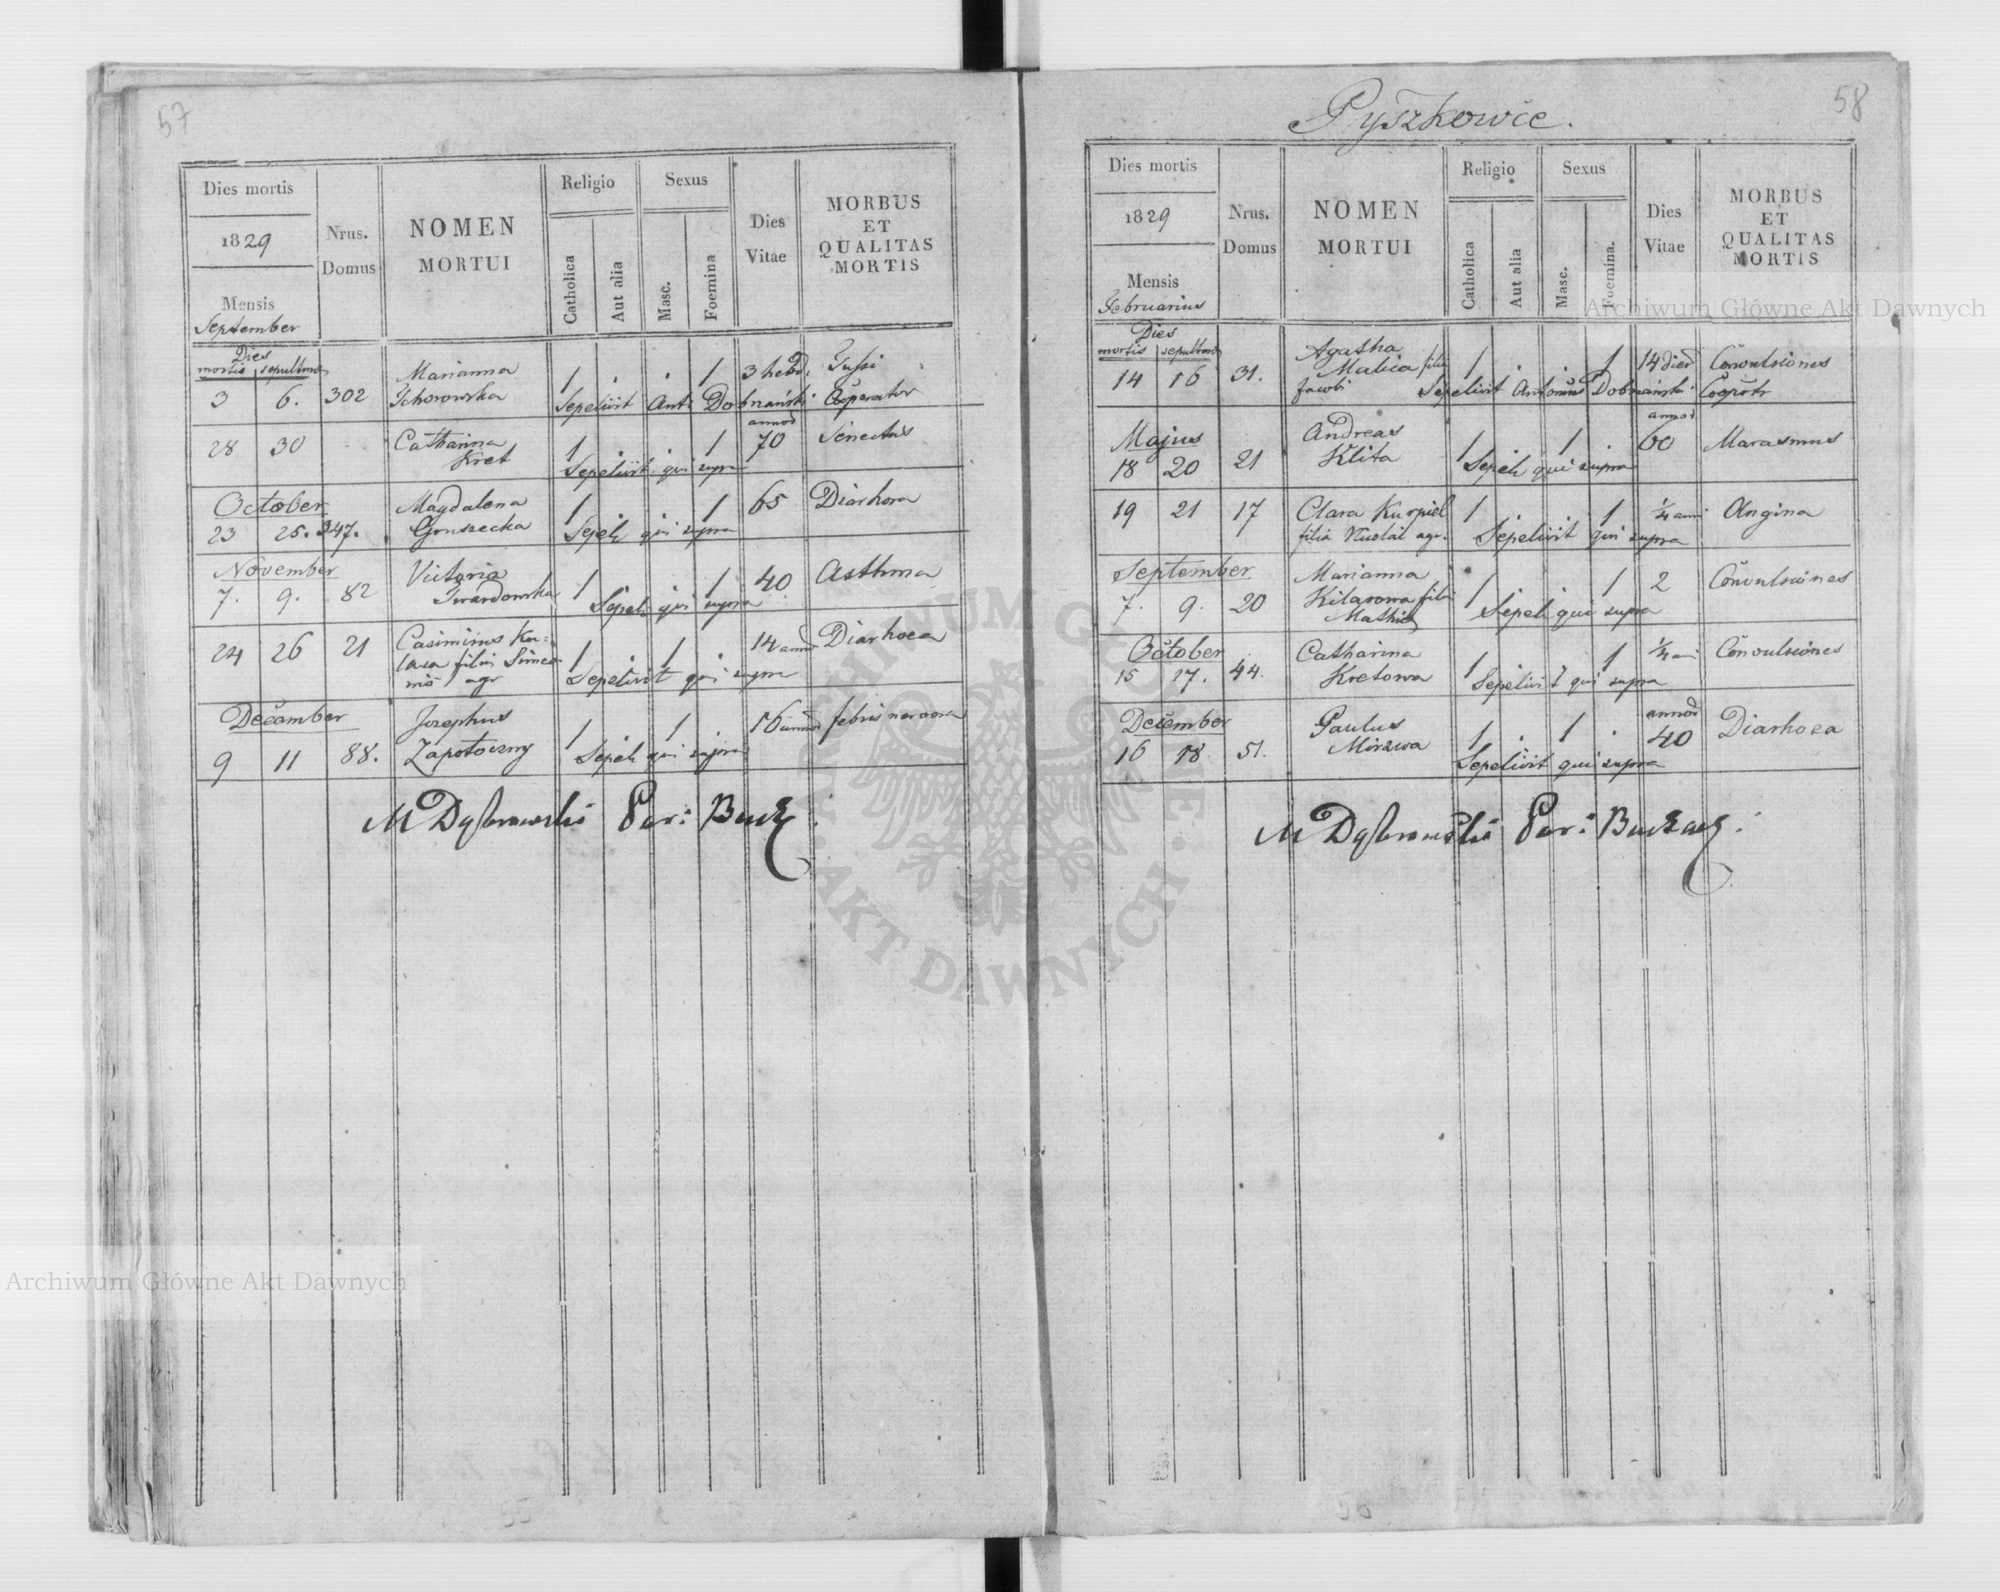 57
Dies mortis
1829
Mensis
September
Nrus.
Domus
NOMEN
MORTUI
Religio
Catholica
Aut alia
Sexus
Masc.
Foemina
Dies
Vitae
MORBUS
ET
QUALITAS
MORTIS
Dies
mortis sepulturae
3 6. 302 Marianna 1 . . 1 3 hebd: Tussi
Sepelivit Ant: Dobrzański Cooperator
28 30 . Catharina Kret 1 . . 1 annos 70 Senectus
Sepelivit qui supra
October
23 25. 347. Magdalena Gruszecka 1 1 65 Diarhoea
Sepeli qui supra
November
7. 9. 82 Victoria Twardowska 1 1 40. Asthma
Sepeli qui supra
24 26 21 Casimirus Ku=
filius Simeo
nis agr 1 . 1 . 14 annos Diarhoea
Sepelivit qui supra
December
9 11 88. Josephus Zapotoczny 1 1 16 annos febris nervosa
Sepeli qui supra
M Dąbrowski Par: Bucz:
58
Pyszkowce.
Dies mortis
1829
Mensis
Februarius
Nrus.
Domus
NOMEN
MORTUI
Religio
Catholica
Aut alia
Sexus
Masc.
Foemina.
Dies
Vitae
MORBUS
ET
QUALITAS
MORTIS
Dies
mortis sepulturae
14 16 31. Agatha Malica filia Jacobi 1 . . 1 14 dies Convulsiones
Sepelivit Antonius Dobrzański Cooptr
Majus
18 20 21 Andreas Klita 1 1 . annos 60 Marasmus
Sepeli qui supra
19 21 17 Clara Kurpiel filia Nicolai agr. 1 1 1/4 anni Angina
Sepelivit qui supra
September
7. 9. 20 Marianna filia Mathiae 1 1 2 Convulsiones
Sepeli qui supra
October
15 17. 44. Catharina Kretowa 1 1 1/4 ani Convulsiones
Sepelivit qui supra
December
16 18 51. Paulus Mirzwa 1 . 1 . annos 40 Diarhoea
Sepelivit qui supra
M Dąbrowski Par: Buczacz:
Archiwum Główne Akt Dawnych
Archiwum Główne Akt Dawnych
ARCHIWUM GŁÓWNE AKT DAWNYCH